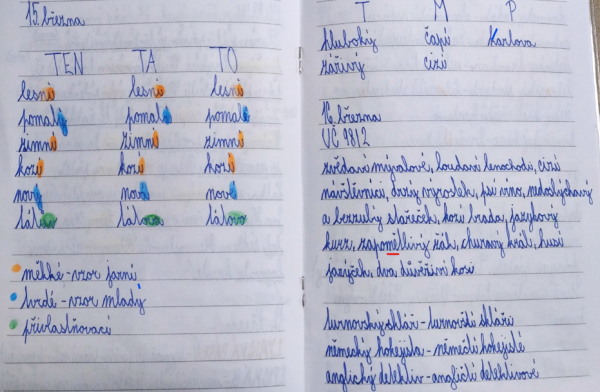 15. března
TEN TA TO
lesní lesní lesní
pomalý pomalá pomalé
zimní zimní zimní
kozí kozí kozí
nový nová nové
tátův tátova tátovo
měkké - vzor jarní
tvrdé - vzor mladý
přivlastňovací
T M P
hluboký čapí Karlova
zářivý cizí
16. března
UČ 98/2
zvědaví mývalové, loudaví lenochodi, cizí
návštěvníci, drzý vyrostek, psí víno, nedoslýchavý
a bezzubý stařeček, kozí brada, jazykový
kurz, zapomětlivý žák, churavý král, husí
jazýček, dva důvěřiví kosi
turnovský sklář - turnovští skláři
německý hokejista - němečtí hokejisté
anglický detektiv - angličtí detektivové